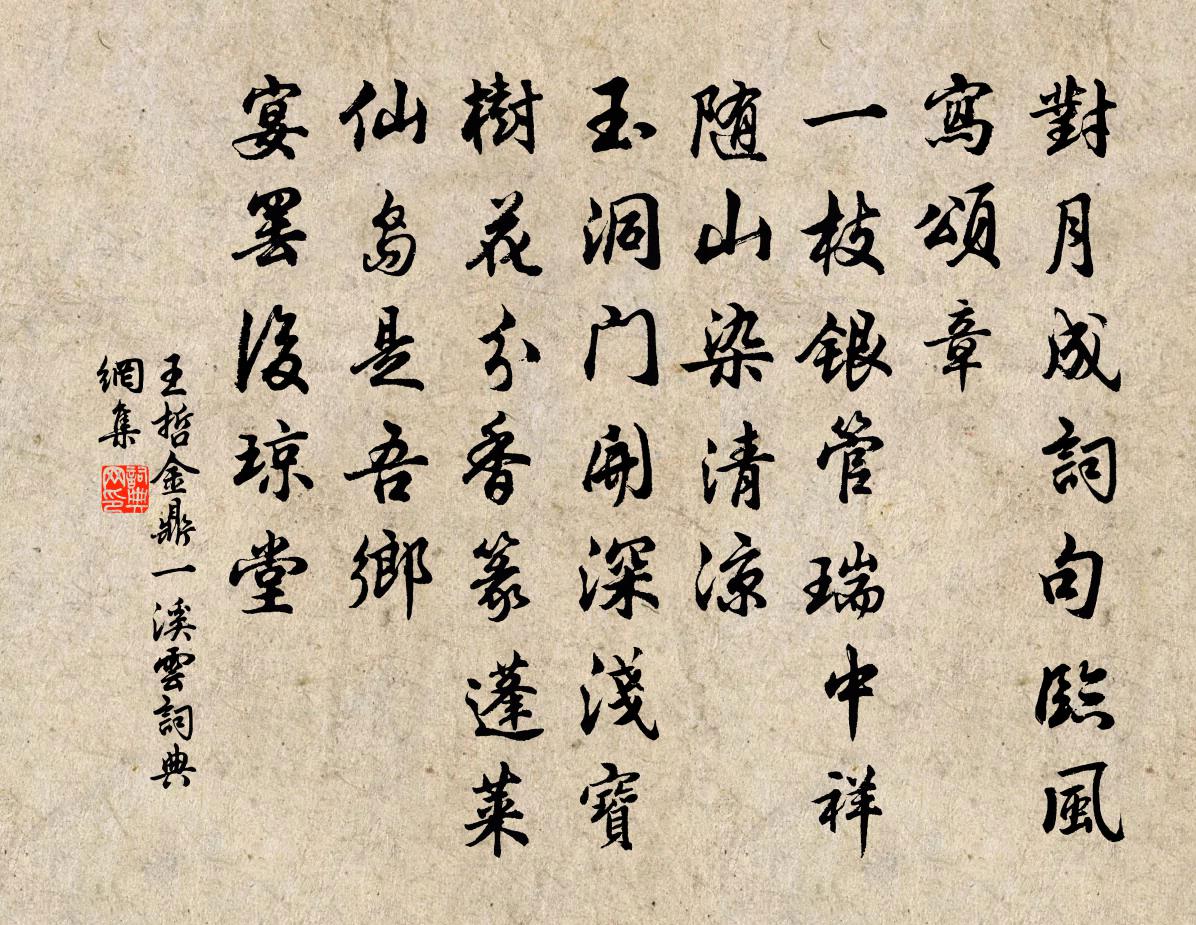 對月成詞句臨風
寫頌章
一枝銀管瑞中祥
随山染清涼
玉洞门開深淺寶
樹花分香篆蓬萊
仙島是吾鄉
宴罢後琼堂
王哲金鼎一溪雲詞典
網集
詞典
网印